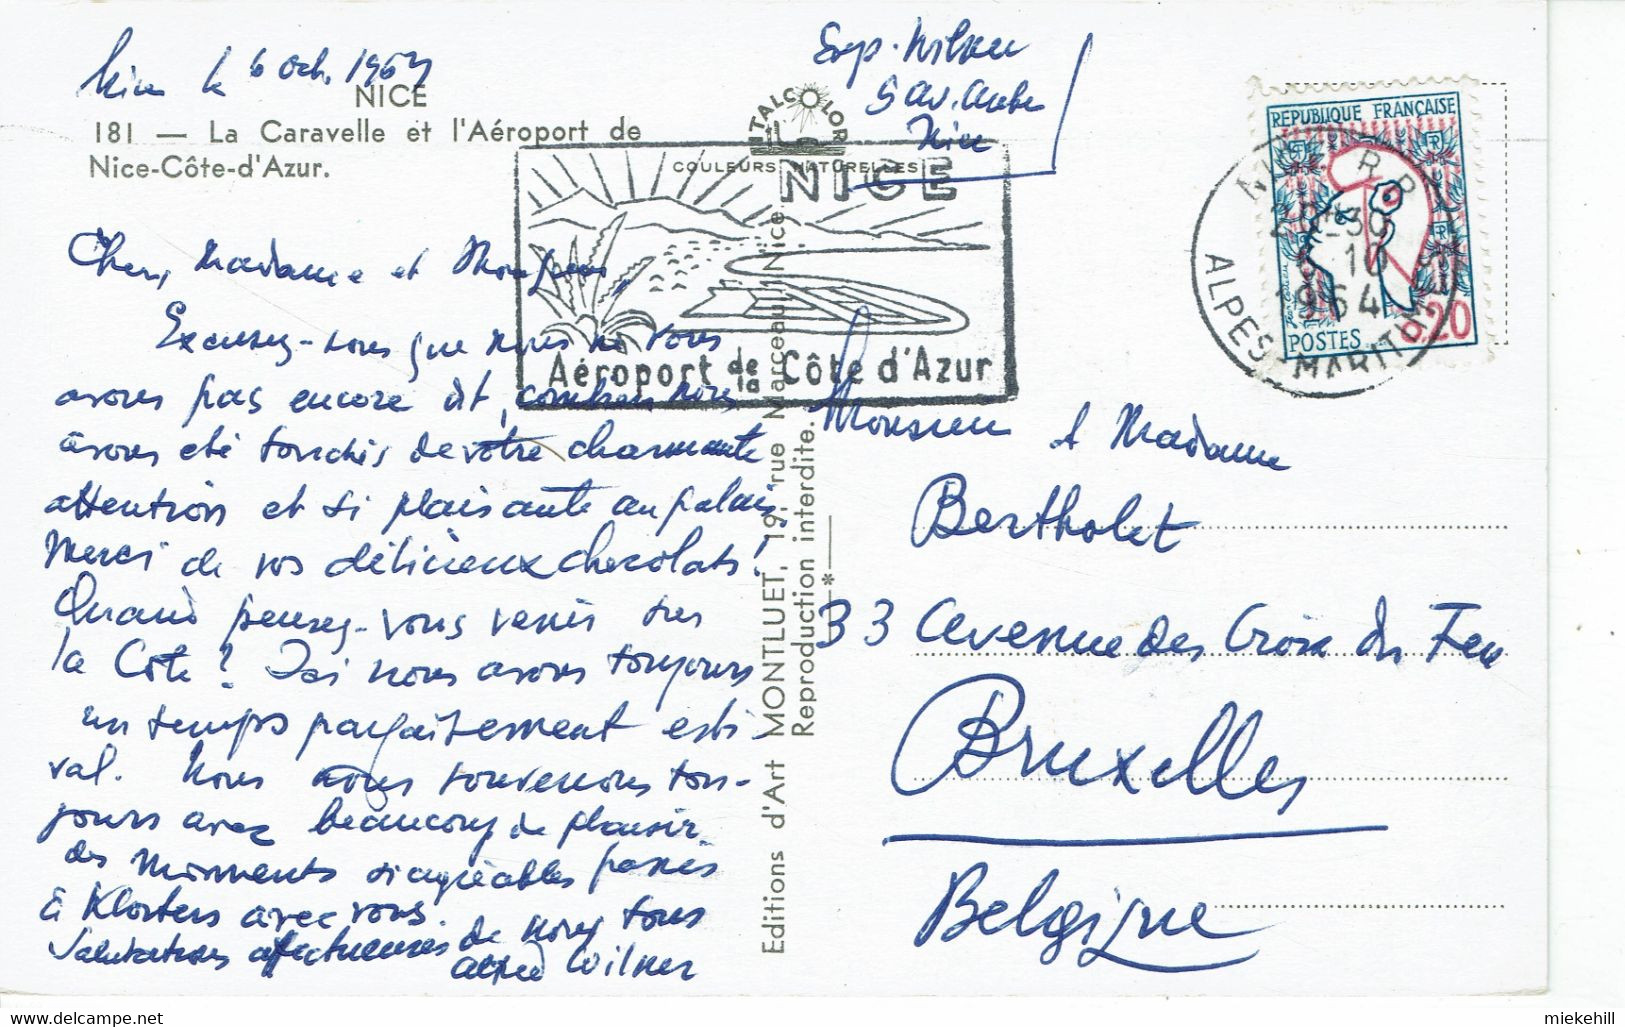 Nice le 6 Oct. 1964
NICE
181 — La Caravelle et l'Aéroport de
Nice-Côte-d'Azur.
Chers Madame et Monsieur,
Excusez-nous que nous ne vous
avons pas encore dit, combien nous
avons été touchés de votre charmante
attention et si plaisante au palais.
Merci de vos délicieux chocolats!
Quand pensez-vous venir sur
la Côte? Ici nous avons toujours
un temps parfaitement esti-
val. Nous nous souvenons tou-
jours avec beaucoup de plaisir
des moments si agréables passés
à Klosters avec vous.
Salutations affectueuses de nous tous
Alfred Wilner
Exp. Wilner
5 av.
Nice
ITALCOLOR
COULEURS NATURELLES
NICE
Aéroport de la Côte d'Azur
Editions d'Art MONTLUET, 19, rue Marceau, Nice
Reproduction interdite.
REPUBLIQUE FRANÇAISE
POSTES
0,20
NICE R.P.
21H30
10
1964
ALPES-MARITIMES
Monsieur & Madame
Bertholet
33 Avenue des Croix du Feu
Bruxelles
Belgique
miekehill